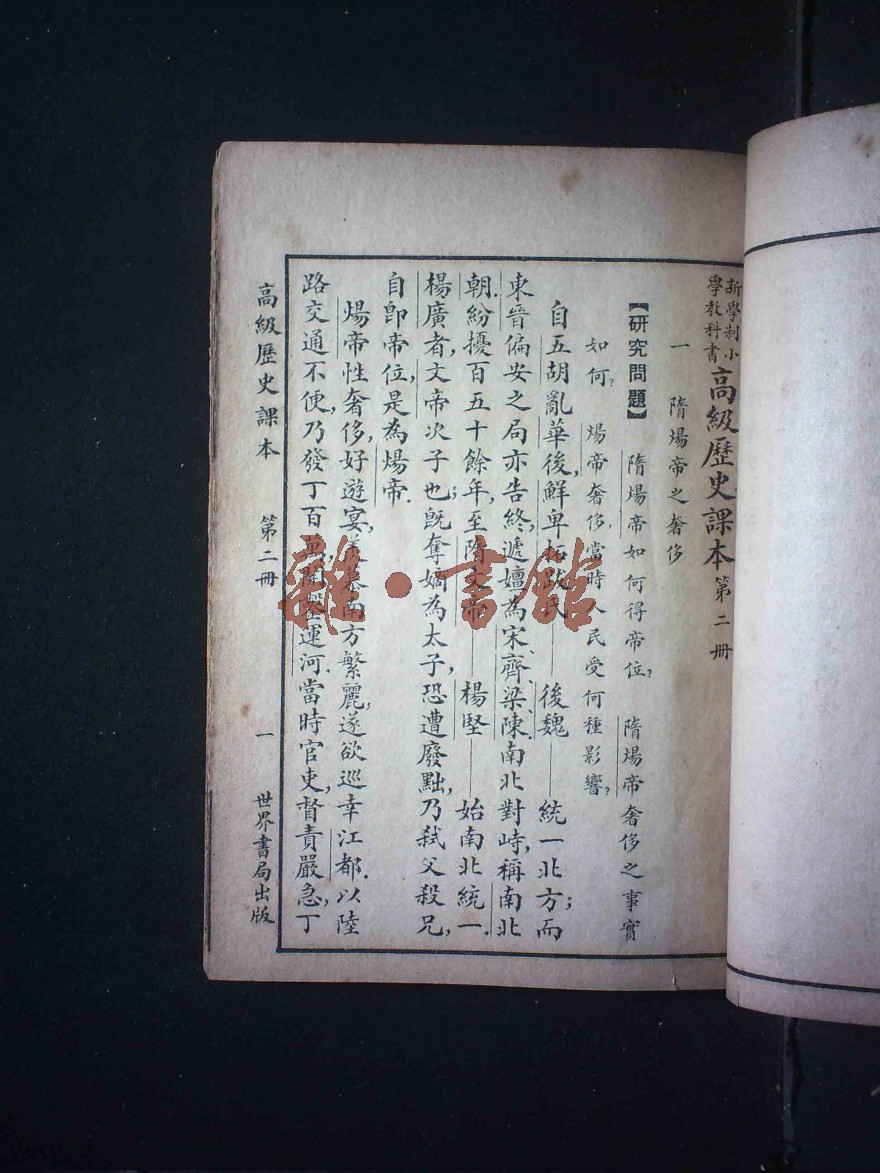 新學制小
學教科書
高級歷史課本 第二冊
一 隋煬帝之奢侈
【研究問題】 隋煬帝如何得帝位？ 隋煬帝奢侈之事實
如何？ 煬帝奢侈，當時人民受何種影響？
自五胡亂華後，鮮卑拓跋氏——後魏——統一北方；而
東晉偏安之局亦告終，遞嬗為宋、齊、梁、陳，南北對峙，稱南北
朝。紛擾百五十餘年，至隋文帝——楊堅——始南北統一．
楊廣者，文帝次子也；既奪嫡為太子，恐遭廢黜，乃弒父殺兄，
自卽帝位，是為煬帝．
煬帝性奢侈，好遊宴，羨慕南方繁麗，遂欲巡幸江都．以陸
路交通不便，乃發丁百萬，開鑿運河．當時官吏，督責嚴急，丁
高級歷史課本 第二冊 一 世界書局出版
雜·書館